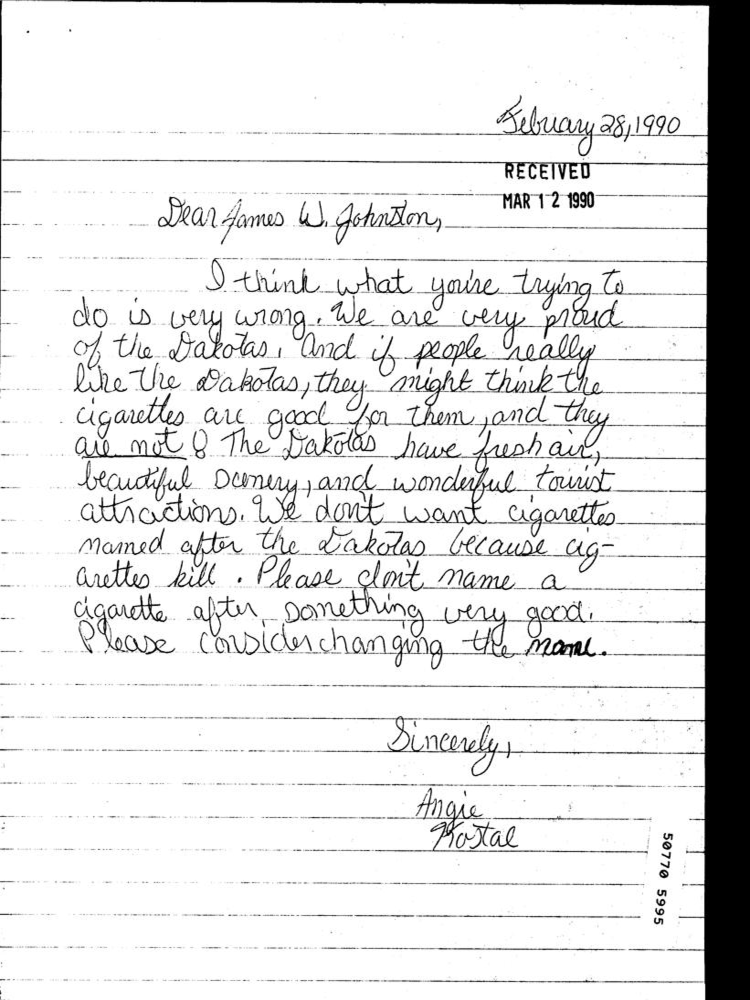 February 28, 1990
RECEIVED
MAR 12 1990
Dear James W. Johnston,
I think what you're trying to
do is very wrong. We are very proud
of the Dakotas. And if people really
like the Dakotas, they might think the
cigarettes are good for them, and they
are not! The Dakotas have fresh air,
beautiful scenery, and wonderful tourist
attractions. We don't want cigarettes
named after the Dakotas because cig-
arettes kill. Please don't name a
cigarette after something very good.
Please consider changing the name.
Sincerely,
Angie
Kostal
50770 5995